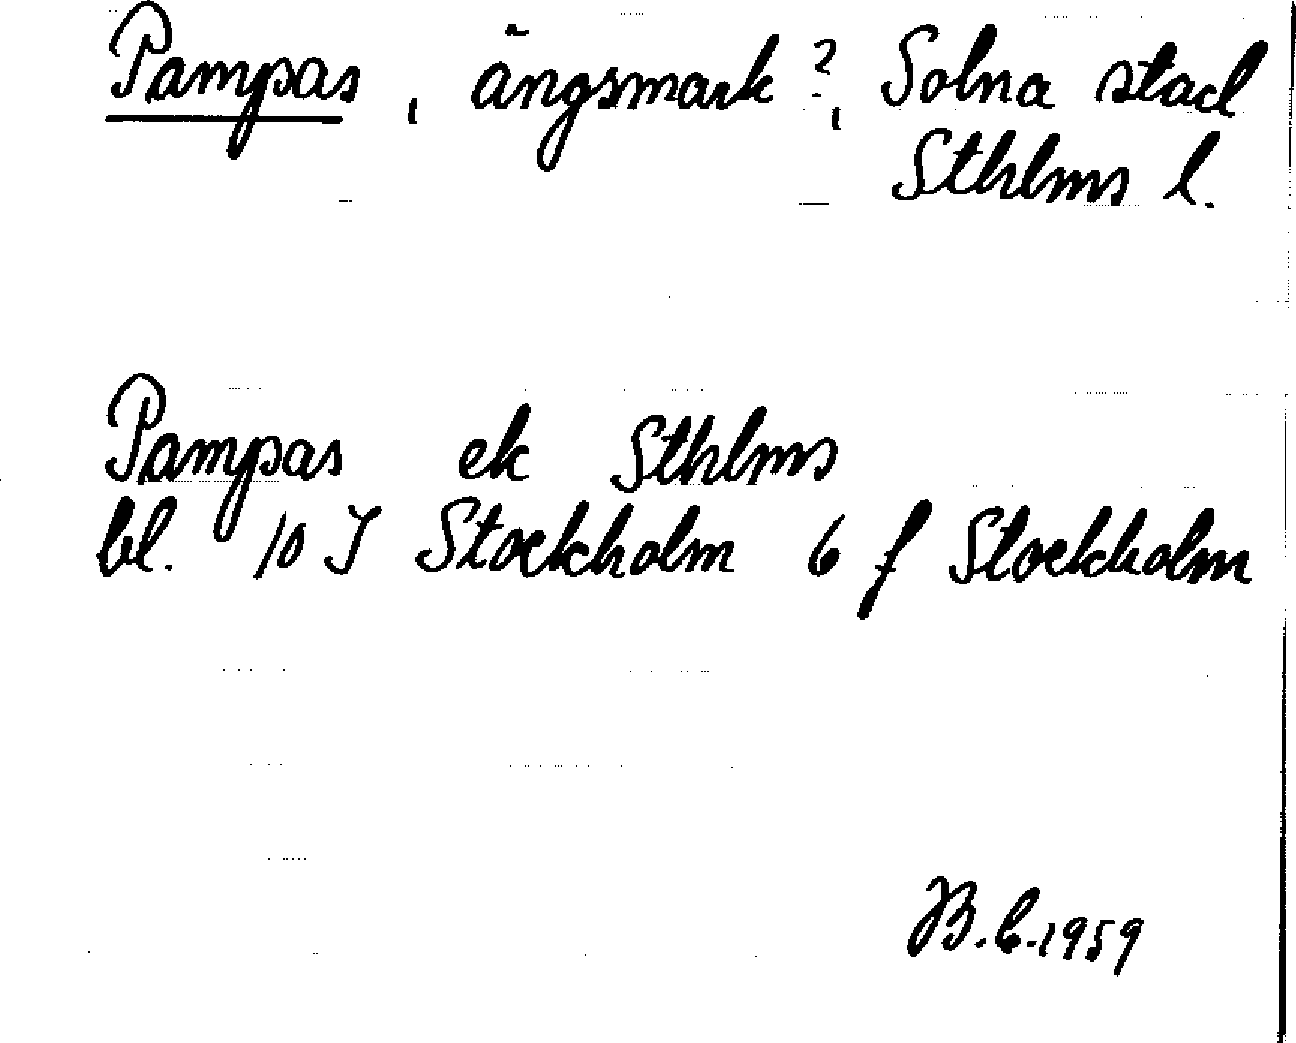 Pampas, ängsmark?, Solna stad
Sthlms l.
Pampas ek Sthlms
bl. 10 I Stockholm 6 f Stockholm
B.C.1959